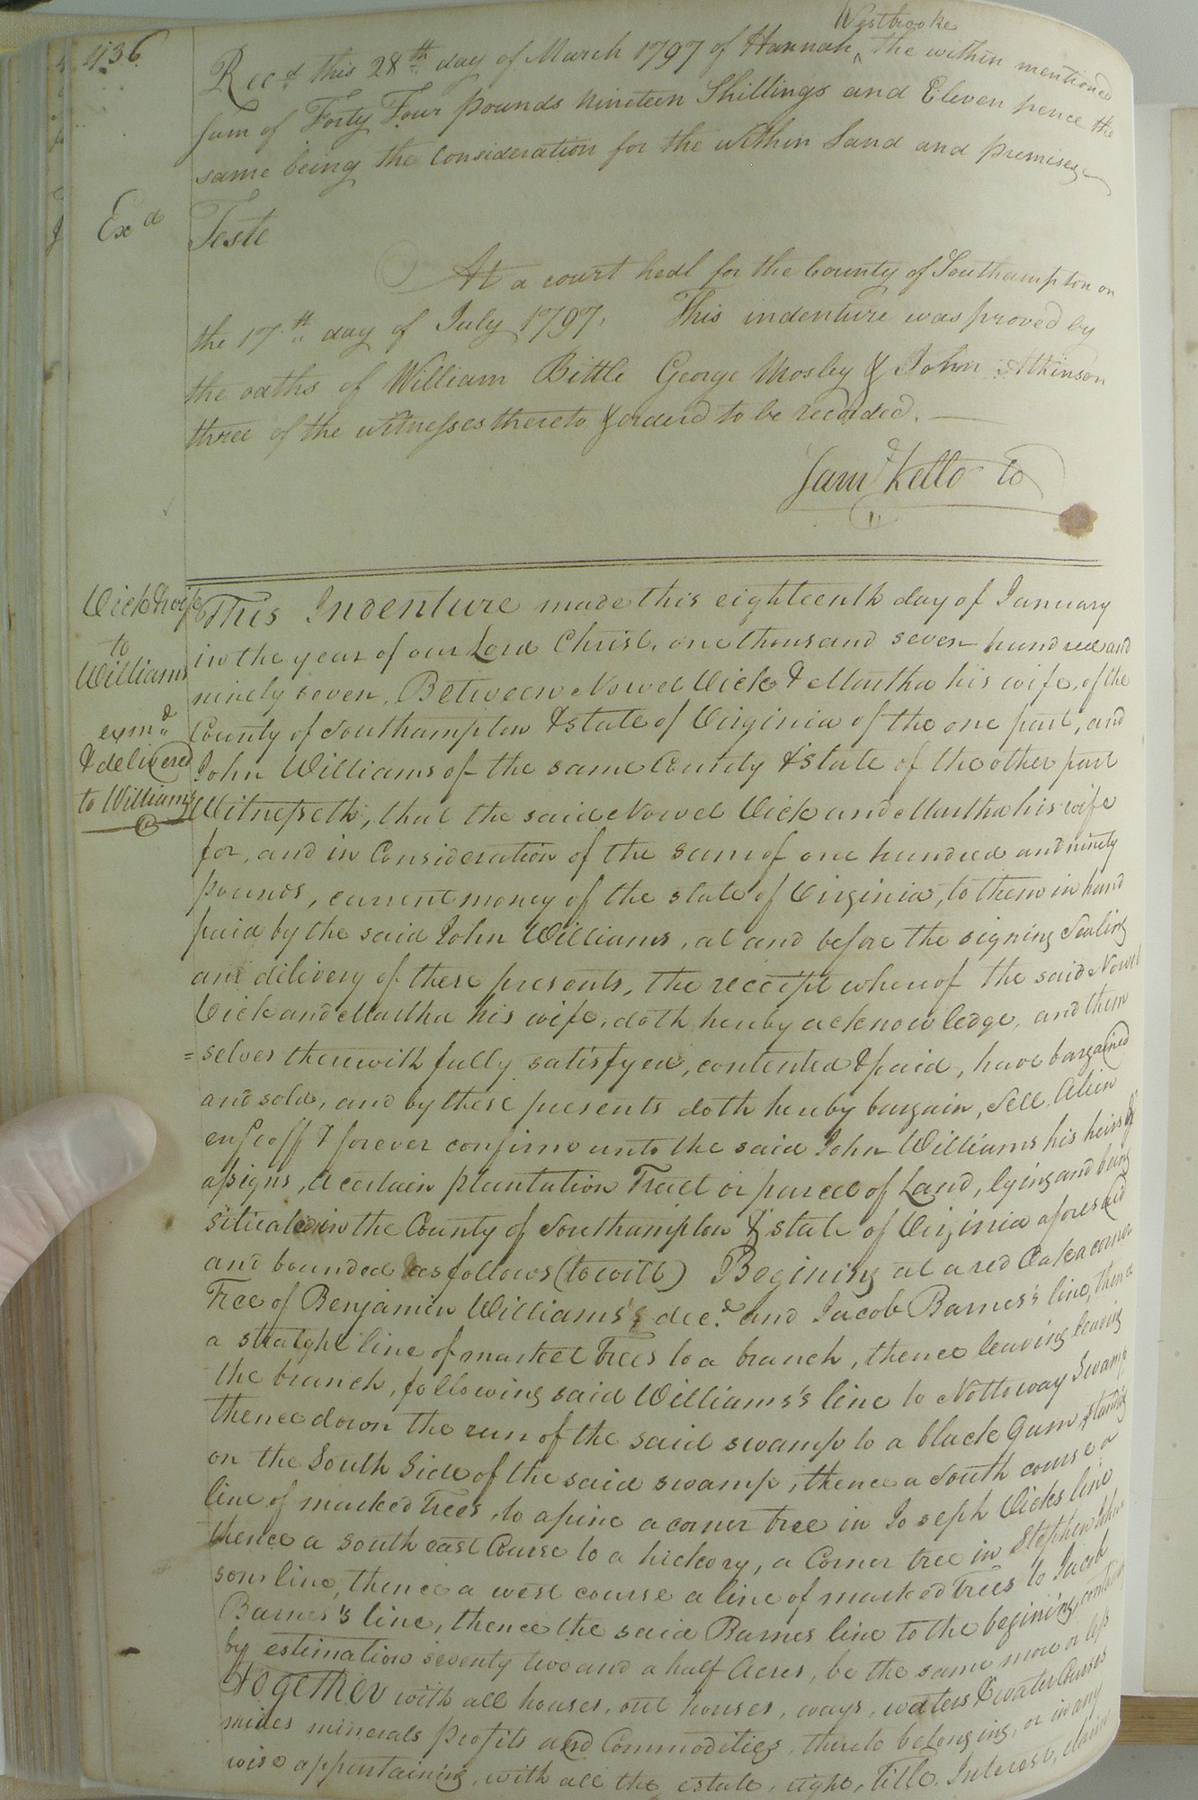 436
Westbrooke
Recd this 28th day of March 1797 of Hannah ^ the within mentioned
sum of Forty Four pounds nineteen Shillings and Eleven pence the
same being the Consideration for the within Land and premises
Exd
Teste
At a court hedl for the County of Southampton on
the 17th day of July 1797. This indenture was proved by
the oaths of William Bittle George Mosley & John Atkinson
three of the witnesses thereto & orderd to be recorded.
Saml Kello
Vick & wife
to
Williams
exmd
& delivered
to Williams
This Indenture made this eighteenth day of January
in the year of our Lord Christ, one thousand seven hundred and
ninety seven, Between Nowel Vick & Martha his wife, of the
County of Southampton & state of Virginia of the one part, and
John Williams of the same County & state of the other part
Witnesseth, that the said Nowel Vick and Martha his wife
for, and in Consideration of the sum of one hundred and ninety
pounds, current money of the state of Virginia, to them in hand
paid by the said John Williams, at and before the signing Sealing
and dilivery of these presents, the receipt whereof the said Nowel
Vick and Martha his wife, doth hereby acknowledge, and them
=selves therewith fully satisfyed, contented & paid, have bargained
and sold, and by these presents doth hereby bargain, Sell, Alien
enfeoff & forever confirm unto the said John Williams his heirs &
assigns, A certain plantation Tract or parcel of Land, lying and being
situate in the County of Southampton & state of Virginia aforesaid
and bounded as follows (to witt) Begining at a red Oak a corner
Tree of Benjamin Williams's decd and Jacob Barnes's line, thence
a straight line of market Trees to a branch, thence leaving leaving
the branch, following said Williams's line to Nottoway Swamp
thence down the run of the said swamp to a black Gum standing
on the South Side of the said swamp, thence a South course a
line of marked Trees, to a pine a corner tree in Joseph Vicks line
thence a south east Course to a hickory, a Corner tree in Stephen
sons line, thence a west course a line of marked Trees to Jacob
Barnes's line, thence the said Barnes line to the begining,
by estimation seventy two and a half Acres, be the same more or less
Together with all houses, out houses, ways, waters & water Courses
mines minerals profits and Commodities, thereto belonging, or in any
wise appertaining, with all the estate, right, Title, Interest, claim